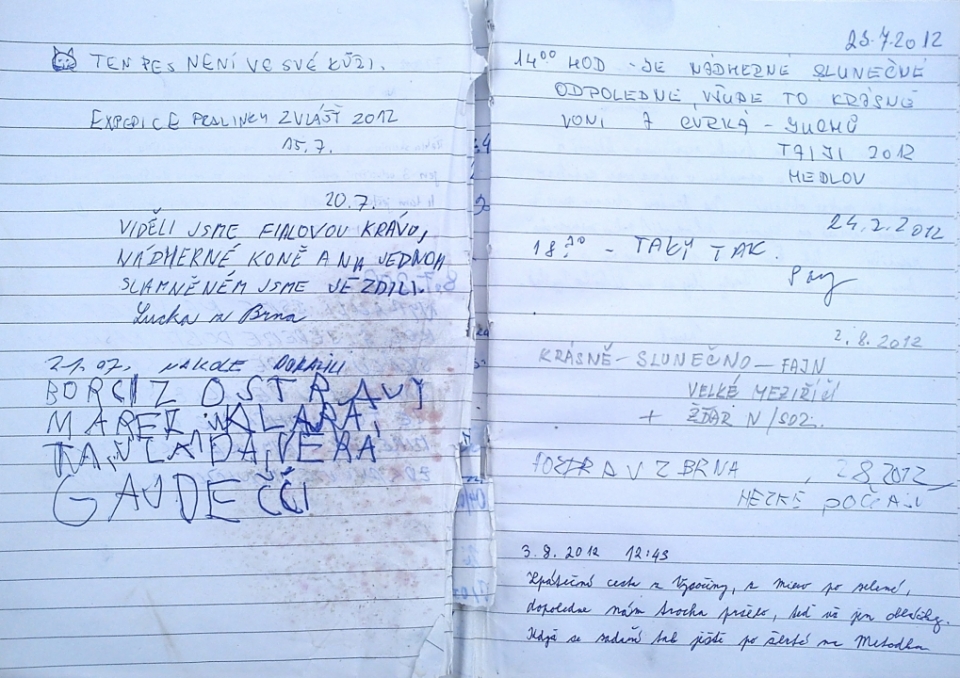 TEN PES NENÍ VE SVÉ KŮŽI.
EXPEDICE PRALINKY ZVLÁŠŤ 2012
15.7.
20.7.
VIDĚLI JSME FIALOVOU KRÁVU,
NÁDHERNÉ KONĚ A NA JEDNOM
SLAMNĚNÉM JSME JEZDILI.
Lucka z Brna
21.07. NAKOLE DORAZILI
BORCI Z OSTRAVY
MAREK, KLARA,
KAŤA, DA, VERA
GAJDEČČI
23.7.2012
14⁰⁰ HOD - JE NÁDHERNÉ SLUNEČNÉ
ODPOLEDNE, VŠUDE TO KRÁSNĚ
VONÍ A CVRKÁ -
TAIJI 2012
MEDLOV
24.7.2012
18.³⁰ - TAKY TAK.
2.8.2012
KRÁSNĚ - SLUNEČNO - FAJN
VELKÉ MEZIŘÍČÍ
+ ŽĎÁR N/SÁZ.
POZDRAV Z BRNA, 2.8.2012
HEZKÉ POČASÍ
3.8.2012 12:43
Zpáteční cesta z Vysočiny, z Mirov po zelené,
dopoledne nám trocha pršelo, teď už jen obláčky.
Když se zadaří tak ještě po žluté na Metodka.